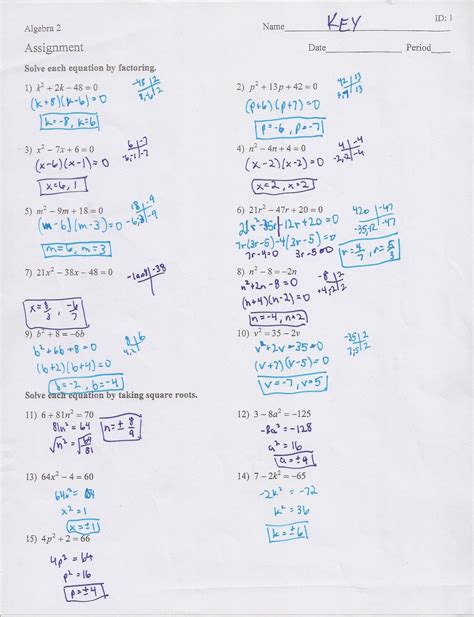 ID: 1
Algebra 2
Name KEY
Assignment
Date Period
Solve each equation by factoring.
1) k² + 2k − 48 = 0
-48 | 2
8,-6 | 2
(k+8)(k-6)=0
k=-8, k=6
2) p² + 13p + 42 = 0
42 | 13
(p+6)(p+7)=0
p=-6, p=-7
3) x² − 7x + 6 = 0
6 | -7
-6,-1 | -7
(x-6)(x-1)=0
x=6, 1
4) n² − 4n + 4 = 0
4 | -4
-2,-2 | -4
(x-2)(x-2)=0
x=2, x=2
5) m² − 9m + 18 = 0
18 | -9
-6,-3 | -9
(m-6)(m-3)=0
m=6, m=3
6) 21r² − 47r + 20 = 0
420 | -47
-35,-12 | -47
21r²-35r-12r+20=0
7r(3r-5)-4(3r-5)=0
7r-4=0 3r-5=0
r=4/7, r=5/3
7) 21x² − 38x − 48 = 0
-1008 | -38
x=8/3, -6/7
8) n² − 8 = −2n
-8 | 2
+4,-2 | 2
n²+2n-8=0
(n+4)(n-2)=0
n=-4, n=2
9) b² + 8 = −6b
8 | 6
4,2 |
b²+6b+8=0
(b+2)(b+4)=0
b=-2, b=-4
10) v² = 35 − 2v
-35 | 2
7,-5 | 2
v²+2v-35=0
(v+7)(v-5)=0
v=-7, v=5
Solve each equation by taking square roots.
11) 6 + 81n² = 70
81n²=64
√n²=√64/81
n=± 8/9
12) 3 − 8a² = −125
-8a²=-128
a²=16
a=±4
13) 64x² − 4 = 60
64x²=64
x²=1
x=±1
14) 7 − 2k² = −65
-2k²=-72
k²=36
k=±6
15) 4p² + 2 = 66
4p²=64
p²=16
p=±4